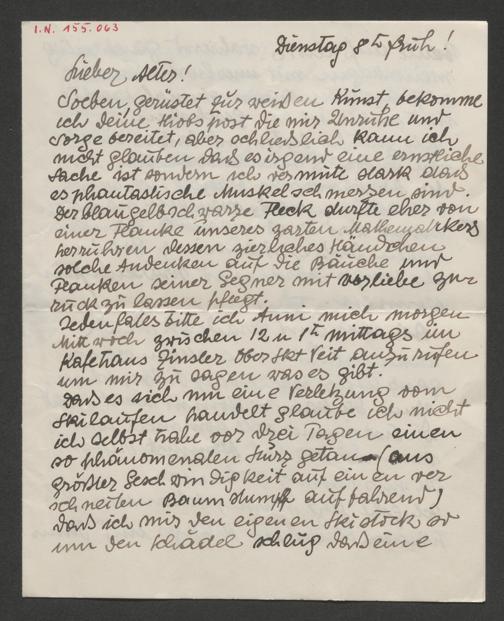 I.N. 155.063
Dienstag 8h früh!
Lieber Alter!
Soeben, gerüstet zur weißen Kunst, bekomme
ich deine Hiobspost die mir Unruhe und
Sorge bereitet, aber schließlich kann ich
nicht glauben dass es irgend eine ernstliche
Sache ist sondern ich vermute stark dass
es phantastische Muskelschmerzen sind.
Der blaugelbschwarze Fleck dürfte eher von
einer Flanke unseres zarten Mathematikers
herrühren dessen zierliches Händchen
solche Andenken auf die Bäuche und
Flanken seiner Gegner mit Vorliebe zu-
rück zu lassen pflegt.
Jedenfalls bitte ich Anni mich morgen
Mittwoch zwischen 12 u 1h mittags im
Kafehaus Zinsler Ober Skt Veit anzurufen
um mir zu sagen was es gibt.
Dass es sich um eine Verletzung vom
Skilaufen handelt glaube ich nicht
ich selbst habe vor drei Tagen einen
so phänomenalen Sturz getan (aus
größter Geschwindigkeit auf einen ver
schneiten Baumstumpf auffahrend)
dass ich mir den eigenen Skistock so
um den Schädel schlug dass eine